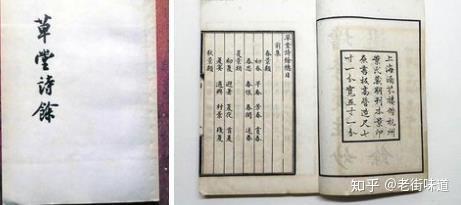 草堂詩餘
上海涵芬樓借杭州
葉氏藏明刊本景印
原書板高營造尺
寬五寸一分
草堂詩餘總目
前集
春景類
初春 早春 芳春 賞春
春思 春恨 春閨 送春
夏景類
初夏 避暑 夏夜 首夏
夏宴 適興 村景 殘夏
秋景類
知乎 @老街味道